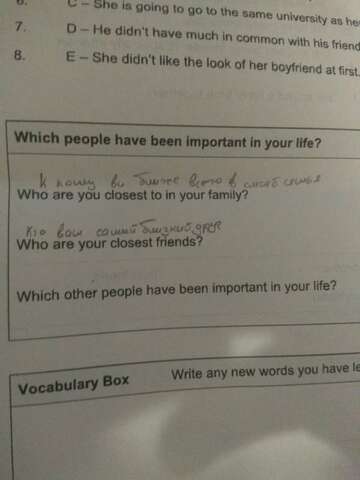 6. C – She is going to go to the same university as he
7. D – He didn't have much in common with his friend
8. E – She didn't like the look of her boyfriend at first.
Which people have been important in your life?
К кому ви ближе всего в своей семья
Who are you closest to in your family?
Кто ваш самий близкий друг
Who are your closest friends?
Which other people have been important in your life?
Vocabulary Box Write any new words you have le